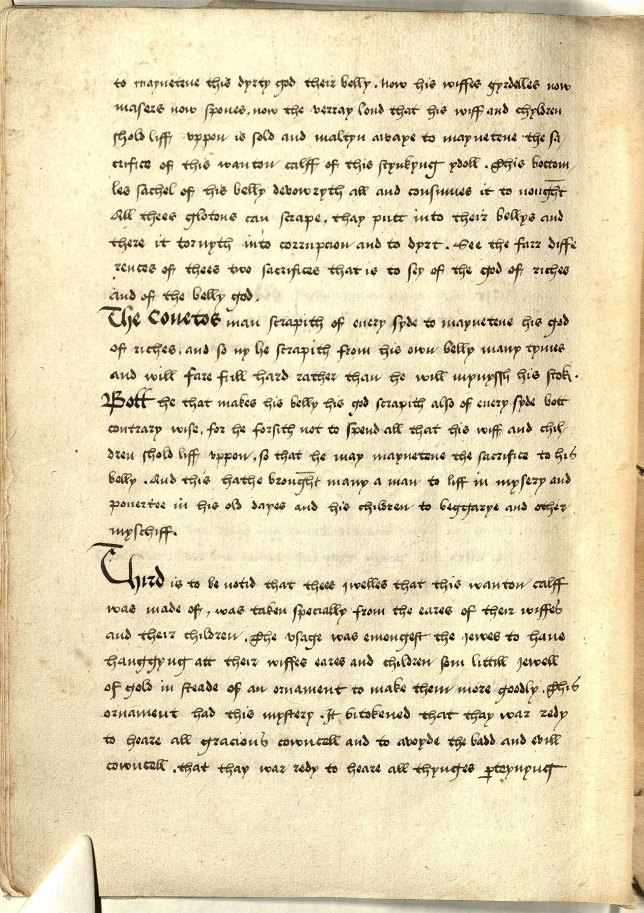 to maynetene this dyrty god their belly. now his wiffes gyrdelles now
masers now spones, now the verray lond that his wiff and chyldren
shold liff vppon is sold and maltyn awaye to maynetene the sa
crifice of this wanton calff of this stynkyng ydoll. This bottom
les sachel of his belly devowryth all and consumes it to nought
All thees glotons can scrape, thay putt in to their bellys and
there it tornyth into corrupcion and to dyrt. See the farr diffe
rences of thees two sacrifices that is to sey of the god of riches
and of the belly god.
The Couetos man scrapith of euery syde to maynetene his god
of riches, and so ny he scrapith from his own belly many tymes
and will fare full hard rather than he will mynyssh his stok.
Bott he that makes his belly his god scrapith also of euery syde bott
contrary wise, for he forsith not to spend all that his wiff and chil
dren shold liff vppon, so that he may maynetene the sacrifice to his
belly. And this hathe brought many a man to liff in mysery and
pouertee in his old dayes and his children to beggarye and other
myschiff.
Third is to be notid that thees iwelles that this wanton calff
was made of, was taken specially from the eares of their wiffes
and their children. The vsage was emongest the iewes to haue
hanggyng att their wiffes eares and children som littill iewell
of gold in steade of an ornament to make them more goodly. This
ornament had this mystery. It bitokened that thay war redy
to heare all gracious cowncell and to avoyde the badd and evill
cowncell, that thay war redy to heare all thynges perteynyng